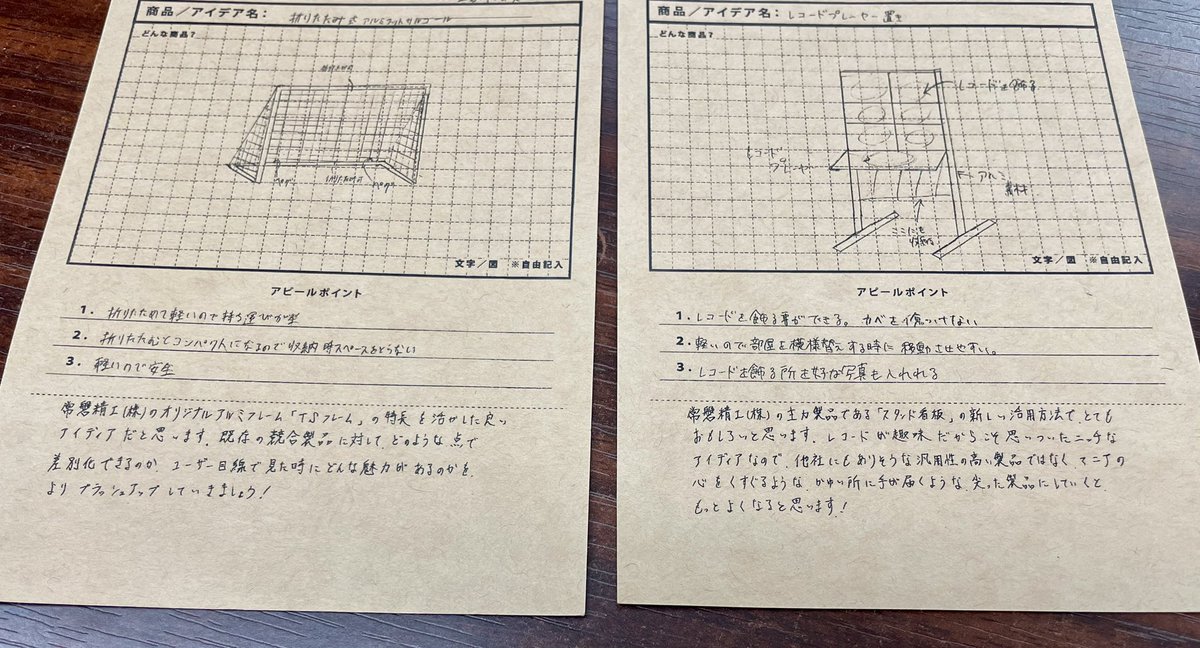 商品／アイデア名： 折りたたみ式アルミフットサルゴール
どんな商品？
折りたたみ可
ペグ
ペグ
文字／図　※自由記入
アピールポイント
1. 折りたためて軽いので持ち運びが楽
2. 折りたたむとコンパクトになるので収納時スペースをとらない
3. 軽いので安全
常磐精工(株)のオリジナルアルミフレーム「TSフレーム」の特長を活かした良い
アイディアだと思います。既存の競合製品に対して、どのような点で
差別化できるのか、ユーザー目線で見た時にどんな魅力があるのかを、
よりブラッシュアップしていきましょう！
商品／アイデア名： レコードプレーヤー置き
どんな商品？
レコードを飾る
レコード
プレーヤー
アルミ
素材
ここにも
収納
文字／図　※自由記入
アピールポイント
1. レコードを飾る事ができる。カベを傷つけない
2. 軽いので部屋を模様替えする時に移動させやすい。
3. レコードを飾る所を好な写真も入れれる
常磐精工(株)の主力製品である「スタンド看板」の新しい活用方法で、とても
おもしろいと思います。レコードが趣味だからこそ思いついたニッチな
アイディアなので、他社にもありそうな汎用性の高い製品ではなく、マニアの
心をくすぐるような、かゆい所に手が届くような、尖った製品にしていくと、
もっとよくなると思います！